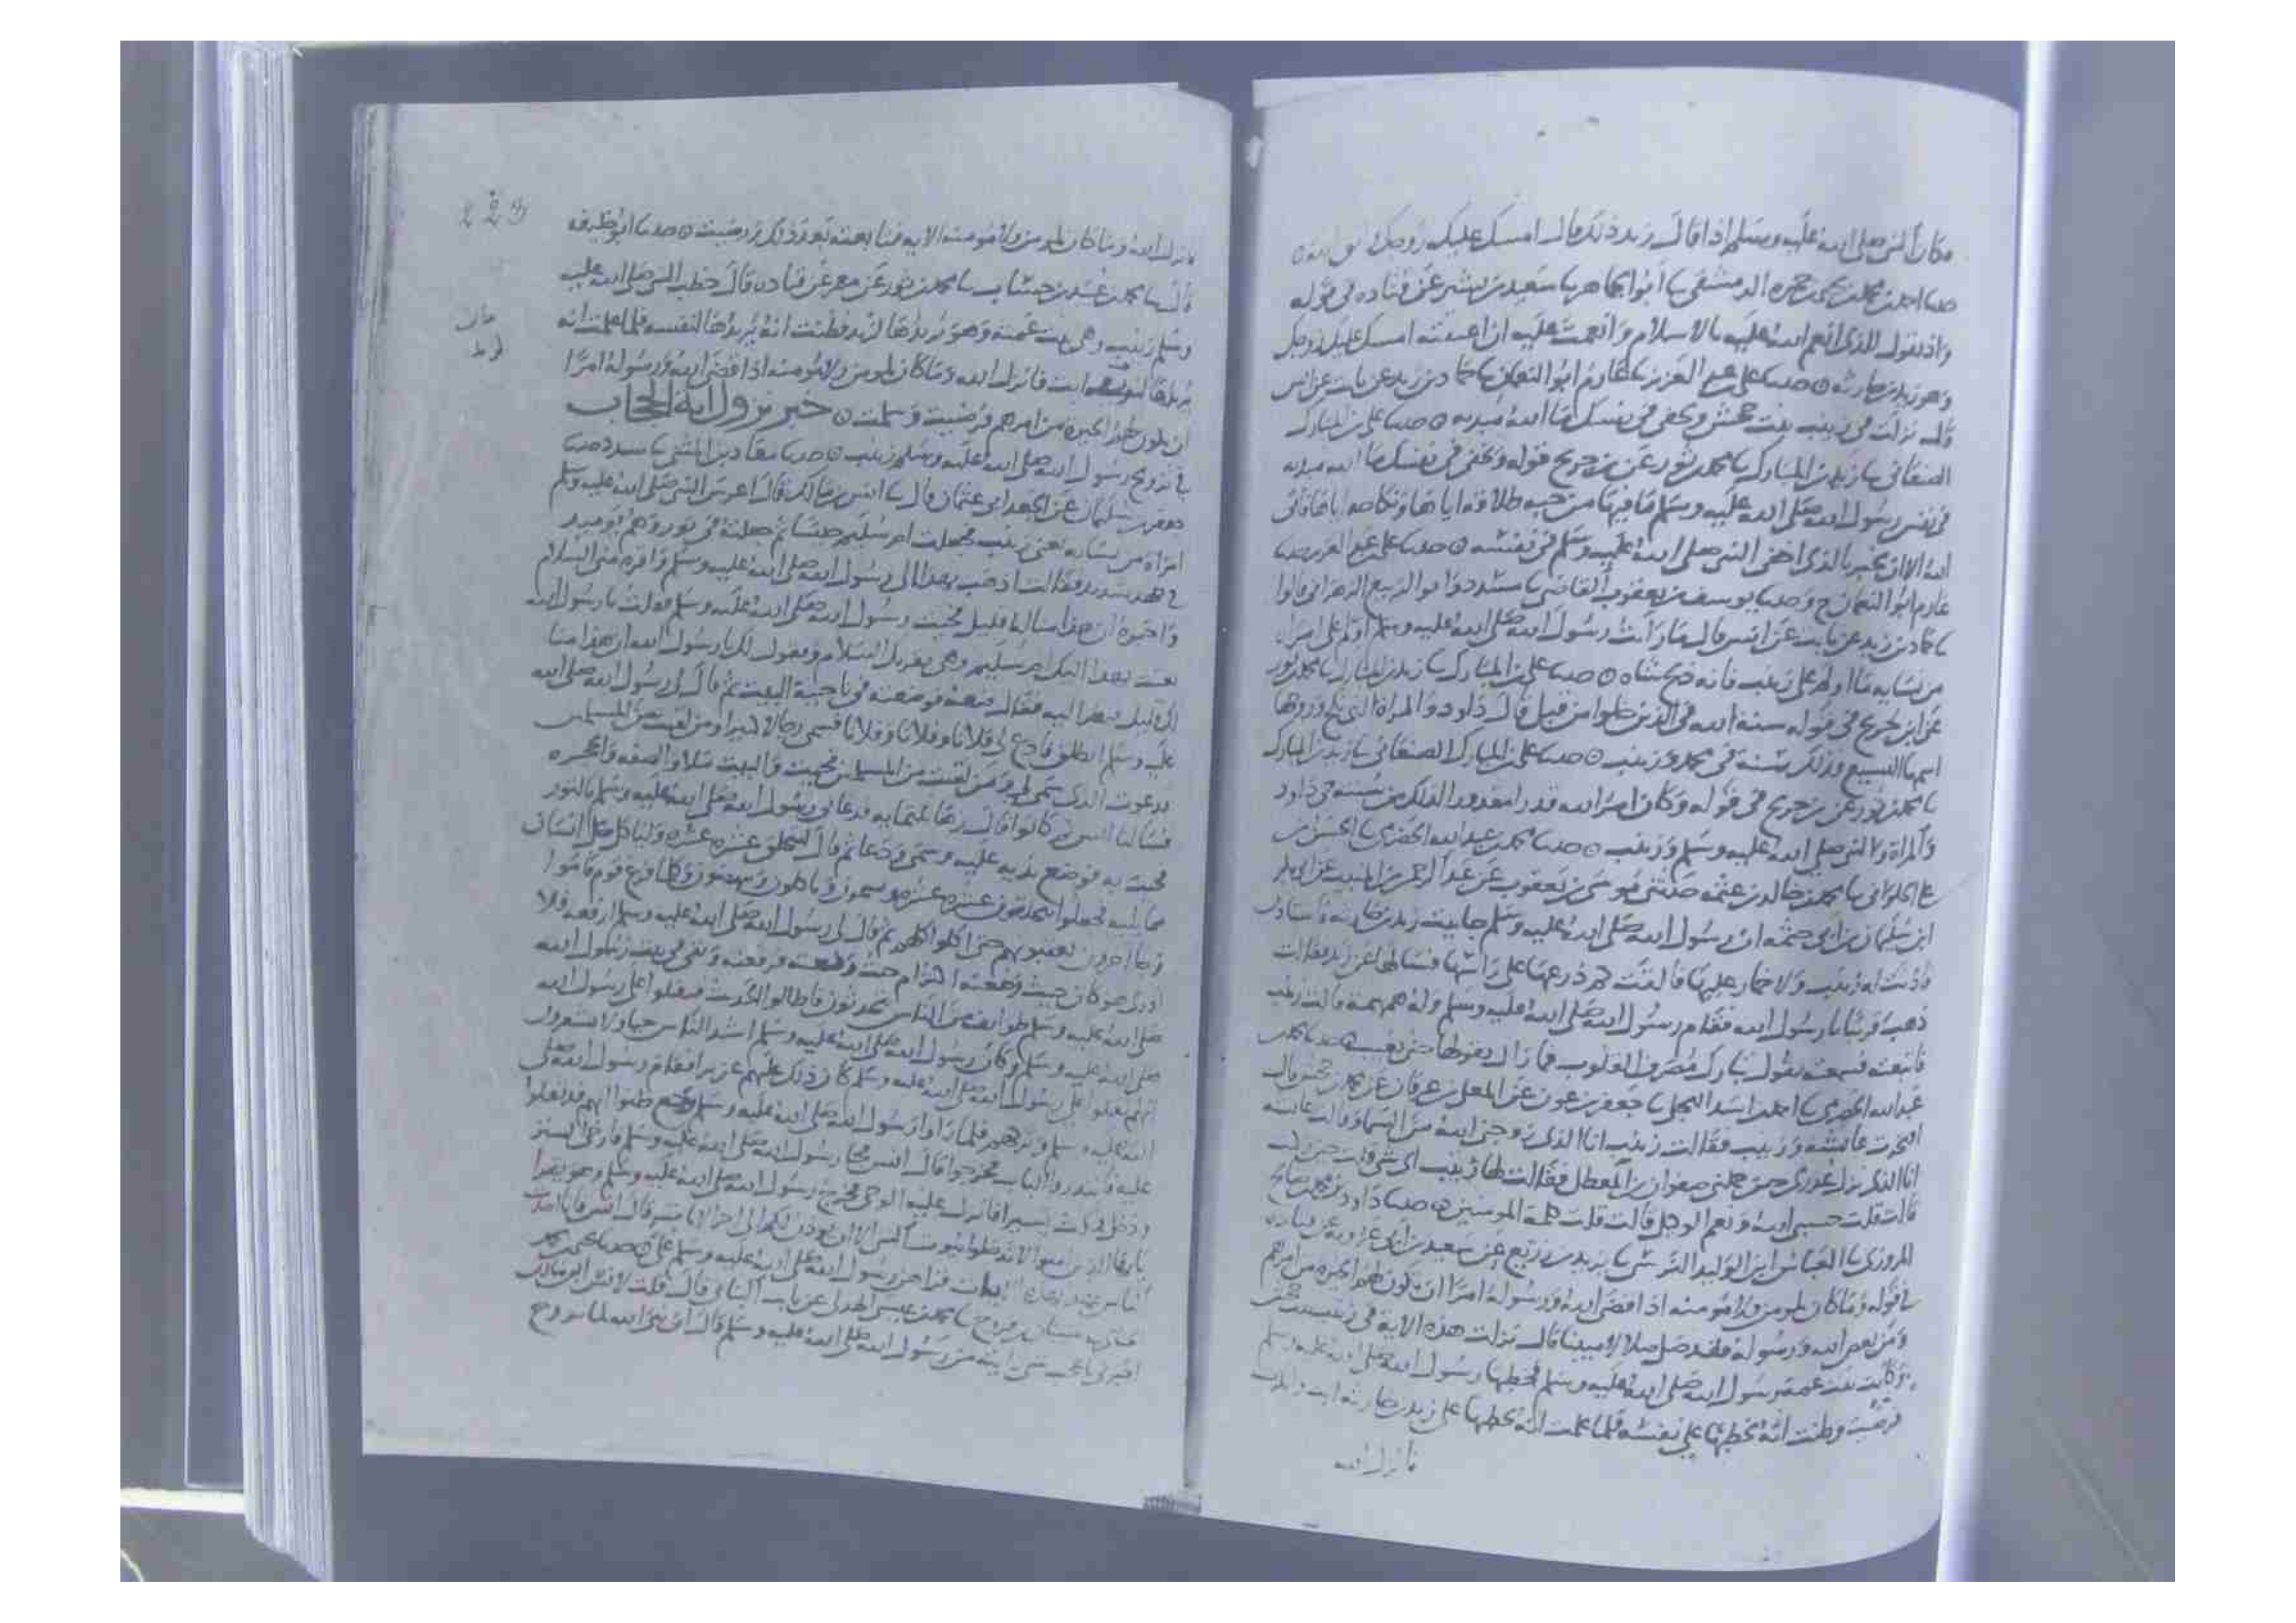 وكان النبي صلى الله عليه وسلم اذا قال زيد ذلك قال امسك عليك زوجك
حدثنا احمد بن محمد بن يحيى بن حمزه الدمشقي با ابو الجماهر با سعيد بن بشير عن قتاده في قوله
واذ تقول للذي انعم الله عليه بالاسلام وانعمت عليه ان اعتقته امسك عليك زوجك
وهو زيد بن حارثه حدثنا علي بن عبد العزيز با عارم ابو النعمان با حماد بن زيد عن ثابت عن انس
قال نزلت في زينب بنت جحش وتخفي في نفسك ما الله مبديه حدثنا علي بن المبارك
الصنعاني با زيد بن المبارك با محمد بن ثور عن بن جريج قوله وتخفي في نفسك ما الله مبديه
في نفس رسول الله صلى الله عليه وسلم ما فيها من حب طلاقه اياها ونكاحه اياها فاتى
الله الا ان يخبر بالذي اخفى النبي صلى الله عليه وسلم في نفسه حدثنا علي بن عبد العزيز حدثنا
عارم ابو النعمان ح وحدثنا يوسف بن يعقوب القاضي با مسدد وابو الربيع الزهراني قالوا
با حماد بن زيد عن ثابت عن انس قال ما رايت رسول الله صلى الله عليه وسلم اولم على امراه
من نسايه ما اولم على زينب فانه ذبح شاه حدثنا علي بن المبارك با زيد بن المبارك با محمد بن ثور
عن ابن جريج في قوله سنة الله في الذين خلوا من قبل قال داود والمراة التي نكح وزوجها
اسمها اليسيع فذلك سنة في محمد وزينب حدثنا علي بن المبارك الصنعاني با زيد بن المبارك
با محمد بن ثور عن بن جريج في قوله وكان امر الله قدرا مقدورا لذلك من سنته في داود
والمراة والنبي صلى الله عليه وسلم وزينب حدثنا محمد بن عبد الله الحضرمي با الحسن بن
علي الحلواني با محمد بن خالد بن عثمه حدثني موسى بن يعقوب عن عبد الرحمن بن المنيب عن ابي بكر
ابن سليمان بن ابي حثمه ان رسول الله صلى الله عليه وسلم جا بيت زيد بن حارثه فاستاذن
فاذنت له زينب ولا خمار عليها فالقت كم درعها على راسها فسالها عن زيد فقالت
ذهب قريبا يا رسول الله فقام رسول الله صلى الله عليه وسلم وله همهمة قالت زينب
فاتبعته فسمعته يقول تبارك مصرف القلوب فما زال يقولها حتى تغيب حدثنا محمد بن
عبد الله الحضرمي با احمد بن اسد البجلي با جعفر بن عون عن المعلى بن عرفان عن محمد بن جحش قال
افتخرت عائشه وزينب فقالت زينب انا الذي زوجني الله من السما وقالت عائشه
انا الذي نزل عذري حين حملني صفوان بن المعطل فقالت لها زينب اي شي قلت حين ركبت
قالت قلت حسبي الله ونعم الوكيل قالت قلت كلمة المومنين حدثنا داود بن محمد بن صالح
المروزي با العباس ابن الوليد النرسي با يزيد بن زريع عن سعيد بن ابي عروبه عن قتاده
في قوله وما كان لمومن ولا مومنه اذا قضى الله ورسوله امرا ان يكون لهم الخيره من امرهم
ومن يعص الله ورسوله فقد ضل ضلالا مبينا قال نزلت هذه الاية في زينب بنت جحش
وكانت بنت عمة رسول الله صلى الله عليه وسلم فخطبها رسول الله صلى الله عليه وسلم
فرضيت وظنت انه يخطبها على نفسه فلما علمت انه يخطبها على زيد بن حارثه ابت وانكرت
فانزل الله
فانزل الله وما كان لمومن ولا مومنه الاية فتابعته بعد ذلك ورضيت حدثنا ابو خليفه
قال با محمد بن عبيد بن حساب با محمد بن ثور عن معمر عن قتاده قال خطب النبي صلى الله عليه
وسلم زينب وهي بنت عمته وهو يريدها لزيد فظنت انه يريدها لنفسه فلما علمت انه
يريدها لزيد ابت فانزل الله وما كان لمومن ولا مومنه اذا قضى الله ورسوله امرا
ان يكون لهم الخيره من امرهم فرضيت وسلمت خبر نزول اية الحجاب
في تزويج رسول الله صلى الله عليه وسلم زينب حدثنا معاذ بن المثنى با مسدد حدثنا
جعفر بن سليمان عن الجعد ابي عثمان قال با انس بن مالك قال اعرس النبي صلى الله عليه وسلم
امراة من نسايه يعني زينب فجعلت ام سليم حيسا ثم جعلته في تور وهم يوميد
في جهد شديد فقالت اذهب بهذا الى رسول الله صلى الله عليه وسلم واقره مني السلام
واخبره ان هذا منا له قليل فجيت رسول الله صلى الله عليه وسلم فقلت يا رسول الله
بعثت بهذا اليك ام سليم وهي تقريك السلام وتقول لك يا رسول الله ان هذا منا
لك قليل فنظر اليه فقال ضعه فوضعته في ناحية البيت ثم قال لي رسول الله صلى الله
عليه وسلم انطلق فادع لي فلانا وفلانا وفلانا فسمى رجالا كثيرا ومن لقيت من المسلمين
فدعوت الذي سمى لي ومن لقيت من المسلمين فجيت والبيت ملا والصفه والحجره
فسالنا انس كم كانوا قال زها ثلثمايه فدعا لي رسول الله صلى الله عليه وسلم بالتور
فجيت به فوضع يديه عليه وسمى ودعا ثم قال ليتحلق عشره عشره وليا كل كل انسان
مما يليه فجعلوا يتحلقون عشره عشره ويسمون وياكلون فكلما فرغ قوم قاموا
وجا اخرون يعقبونهم حتى اكلوا كلهم ثم قال لي رسول الله صلى الله عليه وسلم ارفعه فلا
ادري هو كان حيث وضعته اكثر ام حيث رفعت فرفعته وبقي في بيت رسول الله
صلى الله عليه وسلم طوايف من الناس يتحدثون فاطالوا الحديث فثقلوا على رسول الله
صلى الله عليه وسلم وكان رسول الله صلى الله عليه وسلم اشد الناس حيا ولا يشعرون
انهم ثقلوا على رسول الله صلى الله عليه وسلم كان ذلك عليهم عزيزا فقام رسول الله صلى
الله عليه وسلم وتركهم فلما راوا رسول الله صلى الله عليه وسلم رجع ظنوا انهم قد ثقلوا
عليه فابتدروا الباب فخرجوا قال انس فجا رسول الله صلى الله عليه وسلم فارخى الستر
ودخل فمكث يسيرا فانزل عليه الوحي فخرج رسول الله صلى الله عليه وسلم وهو يقرا
يايها الذين امنوا لا تدخلوا بيوت النبي الا ان يوذن لكم الى اخر الايات قال انس فانا احدث
الناس عهدا بهذه الايات قراهن رسول الله صلى الله عليه وسلم علي حدثنا محمد بن
شيبان بن فروخ با محمد بن عيسى الهذلي عن ثابت البناني قال قلت لانس بن مالك
اخبرني باعجب شي رايته من رسول الله صلى الله عليه وسلم قال ان نبي الله لما تزوج